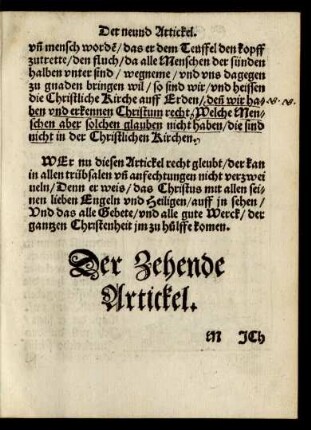 Der neund Artickel.
vñ mensch wordẽ/das er dem Teuffel den kopff
zutrette/den fluch/da alle Menschen der sünden
halben vnter sind/wegneme/vnd vns dagegen
zu gnaden bringen wil/so sind wir/vnd heissen
die Christliche Kirche auff Erden/deñ wir ha-
ben vnd erkennen Christum recht. Welche Men-
schen aber solchen glauben nicht haben/die sind
nicht in der Christlichen Kirchen.
WEr nu diesen Artickel recht gleubt/der kan
in allen trübsalen vñ anfechtungen nicht verzwei
ueln/Denn er weis/das Christus mit allen sei-
nen lieben Engeln vnd Heiligen/auff jn sehen/
Vnd das alle Gebete/vnd alle gute Werck/der
gantzen Christenheit jm zu hülffe komen.
Der Zehende
Artickel.
M JCh